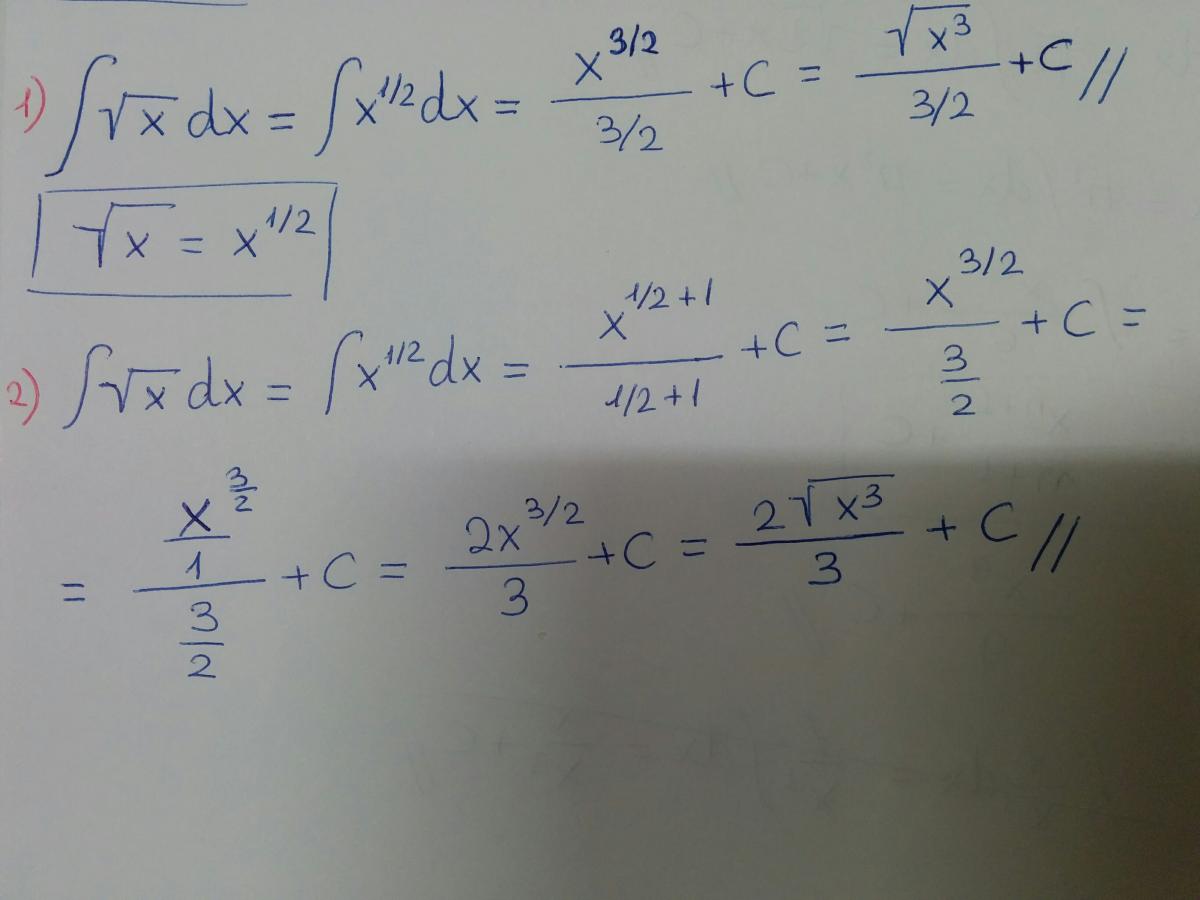 1) ∫√x dx = ∫x^{1/2} dx = \frac{x^{3/2}}{3/2} + C = \frac{√{x^3}}{3/2} + C //
√x = x^{1/2}
2) ∫√x dx = ∫x^{1/2} dx = \frac{x^{1/2+1}}{1/2+1} + C = \frac{x^{3/2}}{\frac{3}{2}} + C =
= \frac{\frac{x^{\frac{3}{2}}}{1}}{\frac{3}{2}} + C = \frac{2x^{3/2}}{3} + C = \frac{2√{x^3}}{3} + C //